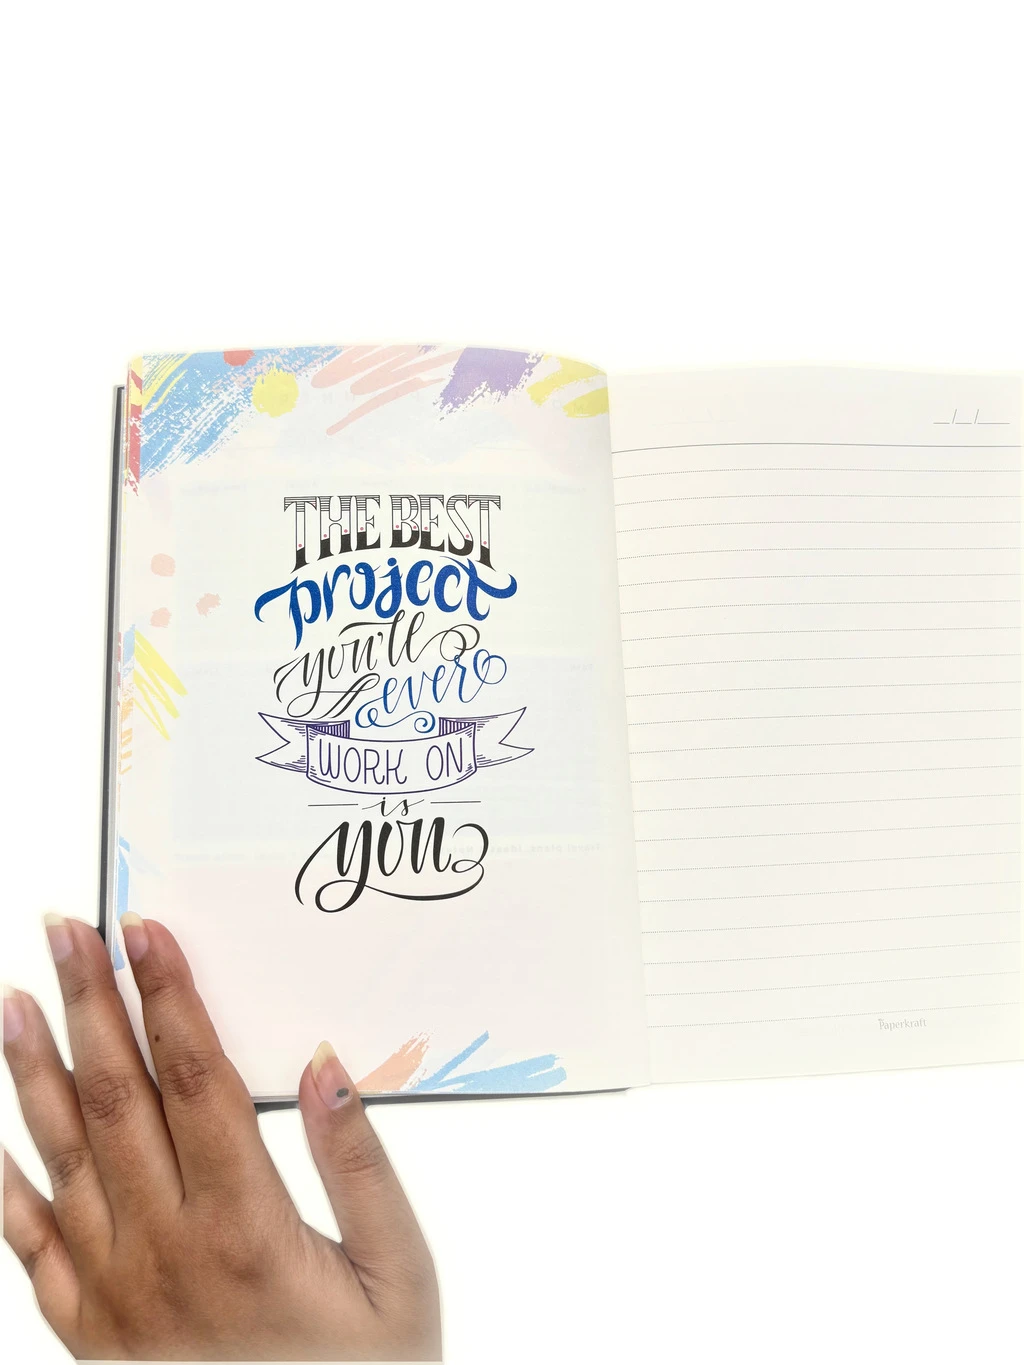 THE BEST
project
you'll
ever
WORK ON
is
you
__/__/____
Paperkraft